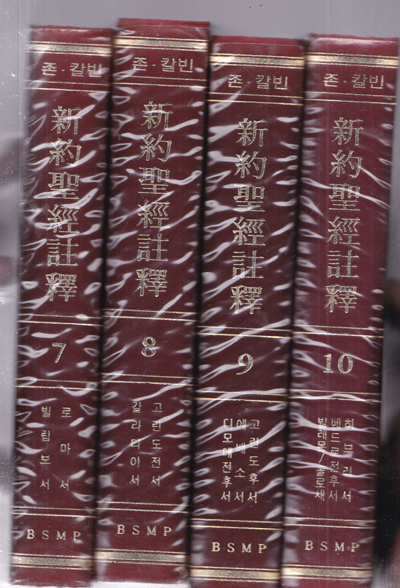 존·칼빈
新約聖經註釋
7
로마서
빌립보서
BSMP
존·칼빈
新約聖經註釋
8
고린도전서
갈라디아서
BSMP
존·칼빈
新約聖經註釋
9
고린도후서
에베소서
디모데전후서
BSMP
존·칼빈
新約聖經註釋
10
히브리서
베드로전후서
BSMP